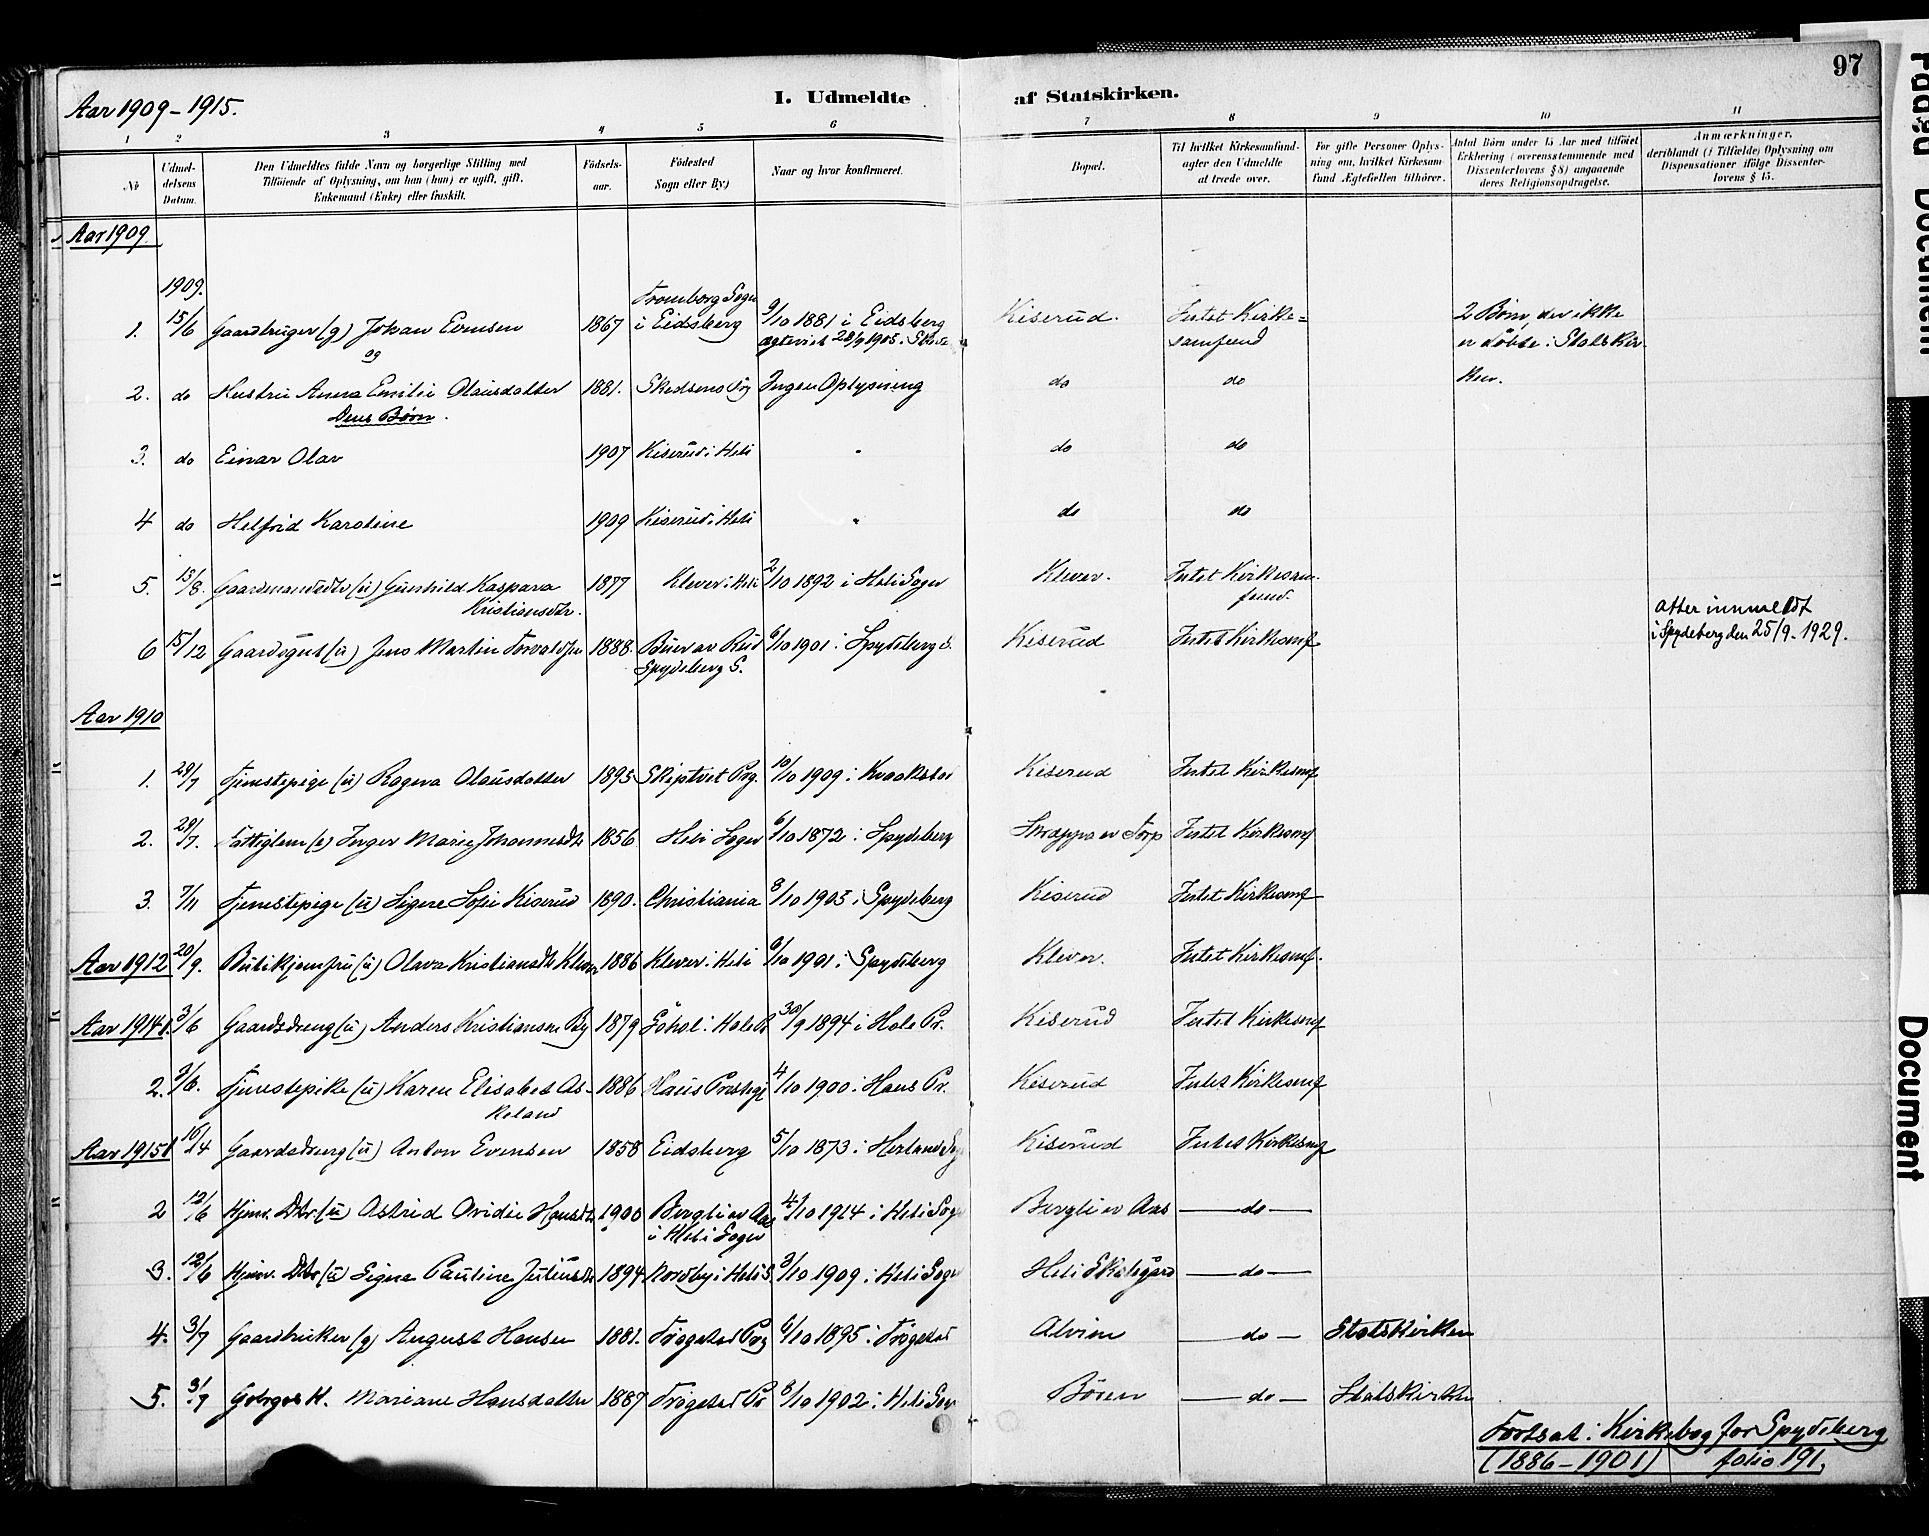 97
Aar 1909-1915.
I. Udmeldte af Statskirken.
1 2 3 4 5 6 7 8 9 10 11
No
Udmel-
delsens
Datum.
Den Udmeldtes fulde Navn og borgerlige Stilling med
Tilföiende af Oplysning, om han (hun) er ugift, gift,
Enkemand (Enke) eller fraskilt.
Födsels-
aar.
Födested
Sogn eller By.)
Naar og hvor konfirmeret.
Bopæl.
Til hvilket Kirkesamfund-
agter den Udmeldte
at træde over.
For gifte Personer Oplys-
ning om, hvilket Kirkesam-
fund Ægtefællen tilhörer.
Antal Börn under 15 Aar med tilföiet
Erklæring (overensstemmende med
Dissenterlovens § 8) angaaende
deres Religionsopdragelse.
Anmærkninger,
deriblandt (i Tilfælde) Oplysning om
Dispensationer ifölge Dissenter-
lovens § 15.
Aar 1909.
1909.
1. 15/6 Gaardbruger (g) Johan Evensen 1867 Tromborg Sogn
i Eidsberg 9/10 1881 i Eidsberg Kiserud. Intet Kirke= 2 Börn, der ikke
og ægteviet 28/9 1905 i samfund er döbte i Statskir-
2. do Hustru Anna Emilie Olausdatter 1881. Ingen Oplysning do do ken.
Deres Børn.
3. do Einar Olav 1907 Kiserud i Heli - do do
4 do Helfrid Karoline 1909 Kiserud i Heli - do do
5. 13/8. Gaardmandsdtr (u) Gunhild Kaspara 1877 Klever i Heli 2/10 1892 i Heli Sogn Klever. Intet Kirkesam-
Kristiansdtr. fund.
6 15/12 Gaardsgut (u) Jens Martin 1888. Rud 6/10 1901 i Spydeberg S. Kiserud Intet Kirkesmf
Spydeberg S.
atter innmeldt
i Spydeberg den 25/9-1929.
Aar 1910
1. 29/7 Tjenestepige (u) Ragna Olausdatter 1895 Skiptvet Prg. 10/10 1909 i Kraakstad Kiserud Intet Kirkesmf
2. 29/7. Fattiglem (e) Inger Marie Johannesdtr 1856 Heli Sogn 6/10 1872 i Spydeberg Torp Intet Kirkesmf
3. 7/11 Tjenestepige (u) Signe Sofie Kiserud 1890. Christiania 8/10 1905 i Spydeberg Kiserud Intet Kirkesmf
Aar 1912 20/9. Butikjomfru (u) Olava Kristiansdtr Klever 1886 Klever i Heli 6/10 1901 i Spydeberg Klever. Intet Kirkesmf.
Aar 1914 1. 3/6 Gaardsdreng (u) Anders Kristiansen By 1879 30/9 1894 i Hole Pr. Kiserud Intet Kirkesmf
2. 3/6. Tjenestepike (u) Karen Elisabet As- 1886 Haus Prestegj 4/10 1900 i Haus Pr. Kiserud Intet Kirkesmf
keland
Aar 1915 1 16/4 Gaardsdreng (u) Anton Evensen 1858 Eidsberg 5/10 1873 i Herland Sogn Kiserud Intet Kirkesmf
2 12/6 Hjemv. Dtr. (u) Astrid Ovidie Hansdtr 1900 Bergli av Aas 4/10 1914 i Heli Sogn Bergli av Aas — do —
i Heli Sogn
3. 12/6 Hjemv. Dtr (u) Signe Pauline Juliusdtr 1894 Nordby i Heli S 3/10 1909 i Heli Sogn Heli Skolegård — do —
4. 3/7 Gaardbruker (g) August Hansen 1881. Trøgstad Prg 6/10 1895 i Trøgstad Alvim — do — Statskirken
5. 3/7 Gbrgs H. Mariane Hansdatter 1887 Trøgstad Pr 8/10 1902 i Heli Sogn — do — Statskirken
Fortsat i Kirkebog for Spydeberg
(1886-1901) folio 191.
Document